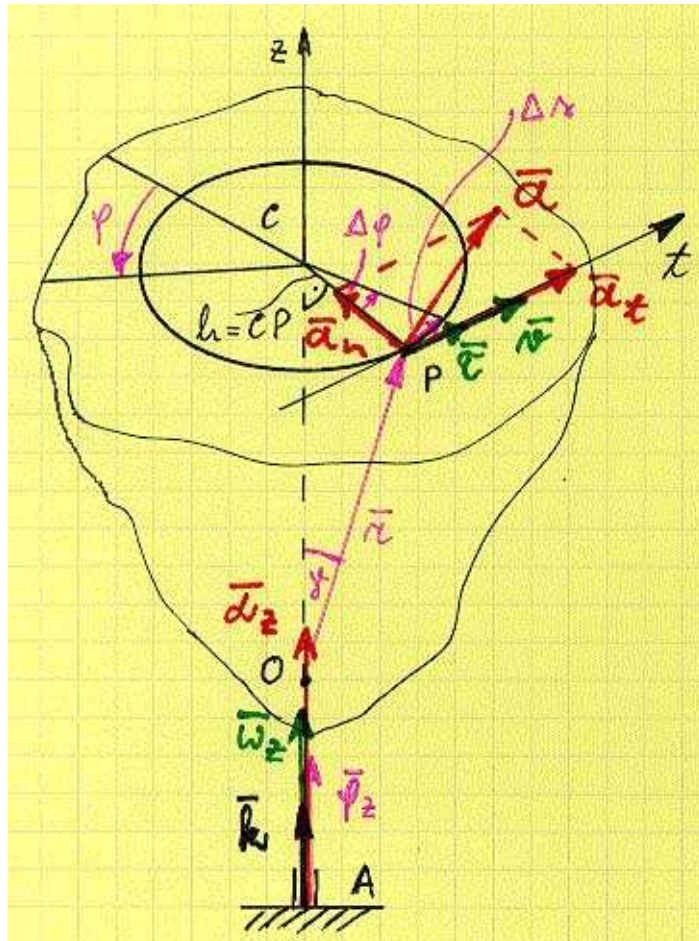 z
Δr
ā
φ
C
Δφ
t
h=CP
ā_n
ā_t
τ̄
v̄
P
r̄
γ
ᾱ_z
O
ω̄_z
φ̄_z
k̄
A